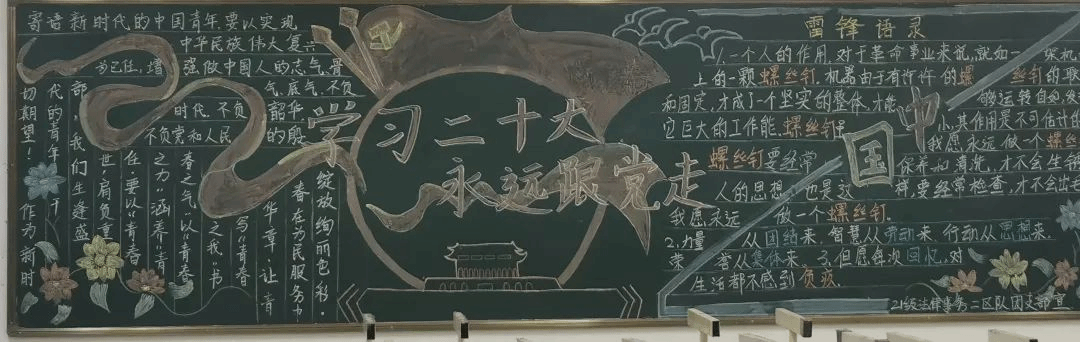 寄语新时代的中国青年要以实现
中华民族伟大复兴
为己任,增强做中国人的志气、骨
气、底气,不负
时代,不负韶华,
不负党和人民的殷
切期望!
作为新时
代的青年干
部,我们生逢盛
世,肩负重
任,要以“青春
之力”涵养“青
春之气”以“青春
之我”书
写“青春
华章”,让青
春在为民服务中
绽放绚丽色彩。
学习二十大
永远跟党走
中国
雷锋语录
1.一个人的作用,对于革命事业来说,就如一架机
上的一颗螺丝钉。机器由于有许许的螺丝钉的联
和固定,才成了个坚实的整体,才能够运转自如,发
它巨大的工作能。螺丝钉虽小,其作用是不可估计的
我愿永远做一个螺丝
螺丝钉要经常保养和清洗,才不会生锈
人的思想也是这样,要经常检查,才不会出毛
我愿永远做一个螺丝钉。
2.力量从团结来,智慧从劳动来,行动从思想来,
荣誉从集体来。3.但愿每次回忆,对
生活都不感到负疚
21级法律事务二区队团支部宣